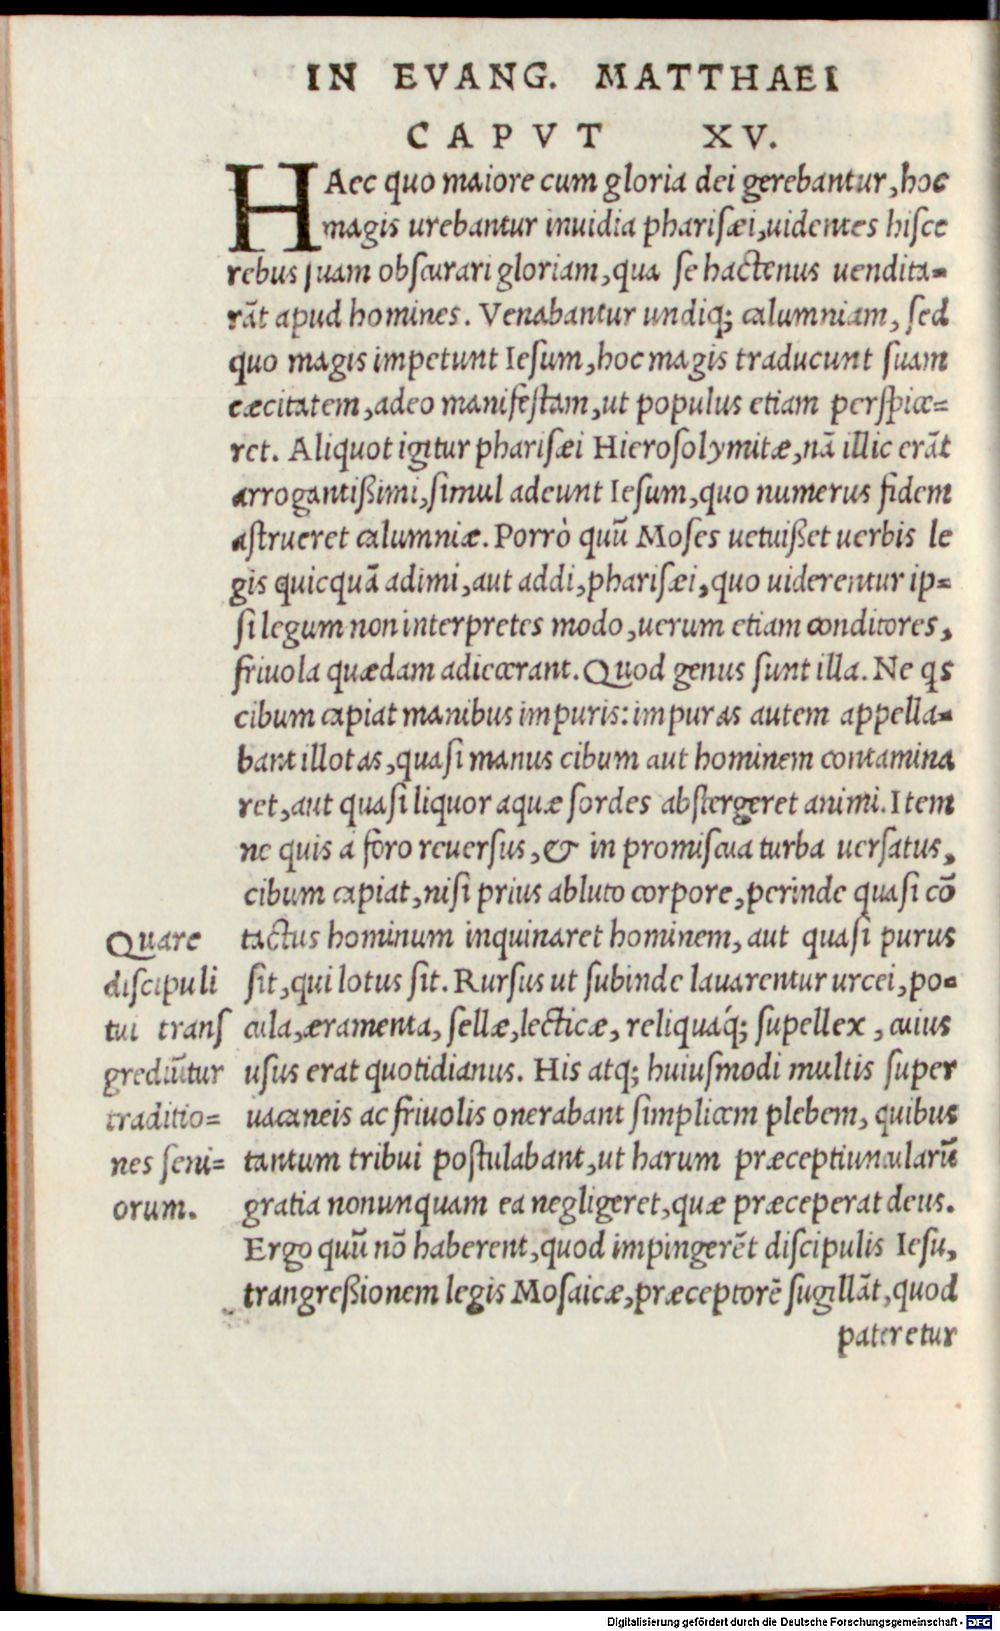 IN EVANG. MATTHAEI
CAPVT XV.
HAec quo maiore cum gloria dei gerebantur, hoc
magis urebantur inuidia pharisæi, uidentes hisce
rebus suam obscurari gloriam, qua se hactenus uendita=
rāt apud homines. Venabantur undiq; calumniam, sed
quo magis impetunt Iesum, hoc magis traducunt suam
cæcitatem, adeo manifestam, ut populus etiam perspice=
ret. Aliquot igitur pharisæi Hierosolymitæ, nā illic erāt
arrogantißimi, simul adeunt Iesum, quo numerus fidem
astrueret calumniæ. Porrò quū Moses uetuißet uerbis le
gis quicquā adimi, aut addi, pharisæi, quo uiderentur ip=
si legum non interpretes modo, uerum etiam conditores,
friuola quædam adiecerant. Quod genus sunt illa. Ne qs
cibum capiat manibus impuris: impuras autem appella=
bant illotas, quasi manus cibum aut hominem contamina
ret, aut quasi liquor aquæ sordes abstergeret animi. Item
ne quis a foro reuersus, & in promiscua turba uersatus,
cibum capiat, nisi prius abluto corpore, perinde quasi cō
tactus hominum inquinaret hominem, aut quasi purus
sit, qui lotus sit. Rursus ut subinde lauarentur urcei, po=
cula, æramenta, sellæ, lecticæ, reliquáq; supellex, cuius
usus erat quotidianus. His atq; huiusmodi multis super
uacaneis ac friuolis onerabant simplicem plebem, quibus
tantum tribui postulabant, ut harum præceptiuncularū
gratia nonunquam ea negligeret, quæ præceperat deus.
Ergo quū nō haberent, quod impingerēt discipulis Iesu,
trangreßionem legis Mosaicæ, præceptorē sugillāt, quod
pateretur
Quare
discipuli
tui trans
grediūtur
traditio=
nes seni=
orum.
Digitalisierung gefördert durch die Deutsche Forschungsgemeinschaft - DFG